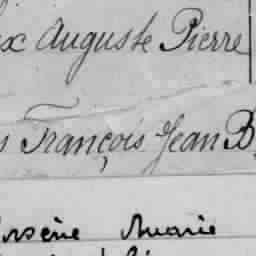 x Auguste Pierre
s François Jean B
Arsène Marie